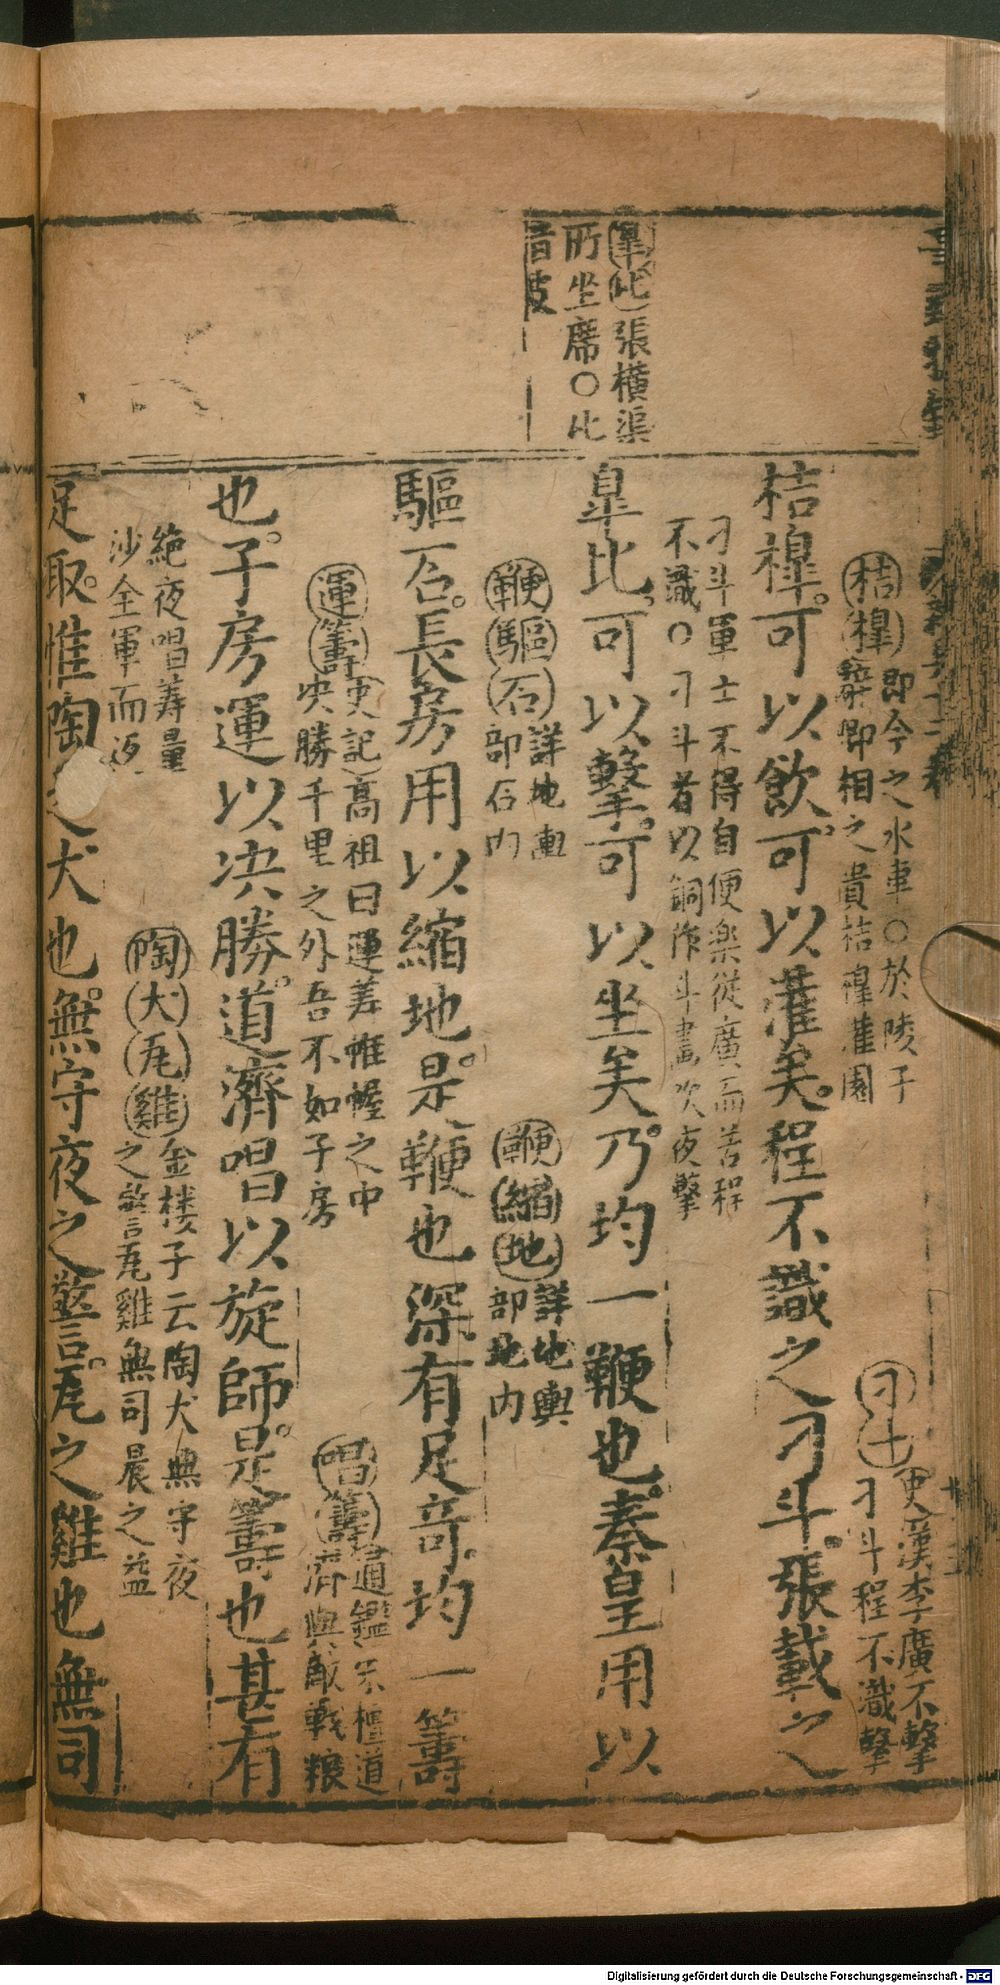 皐比張橫渠
所坐席○比
音皮
桔槹即今之水車○於陵子
辭即相之貴桔槹灌園
刁斗史漢李廣不擊
刁斗程不識擊
桔槹可以飲可以灌美程不識之刁斗張載之
刁斗軍士不得自便樂從廣而苦程
不識○刁斗者以銅作斗晝炊夜擊
皐比可以擊可以坐美乃均一鞭也秦皇用以
鞭驅石詳地輿
部石內
鞭縮地詳地輿
部地內
驅石長房用以縮地是鞭也深有足奇均一籌
運籌史記高祖曰運筭帷幄之中
央勝千里之外吾不如子房
唱籌通鑑宋檀道
濟與敵戰粮
也子房運以决勝道濟唱以旋師是籌也甚有
絶夜唱筹量
沙全軍而返
陶犬瓦雞金楼子云陶犬無守夜
之警瓦雞無司晨之益
足取惟陶之犬也無守夜之警瓦之雞也無司
Digitalisierung gefördert durch die Deutsche Forschungsgemeinschaft - DFG